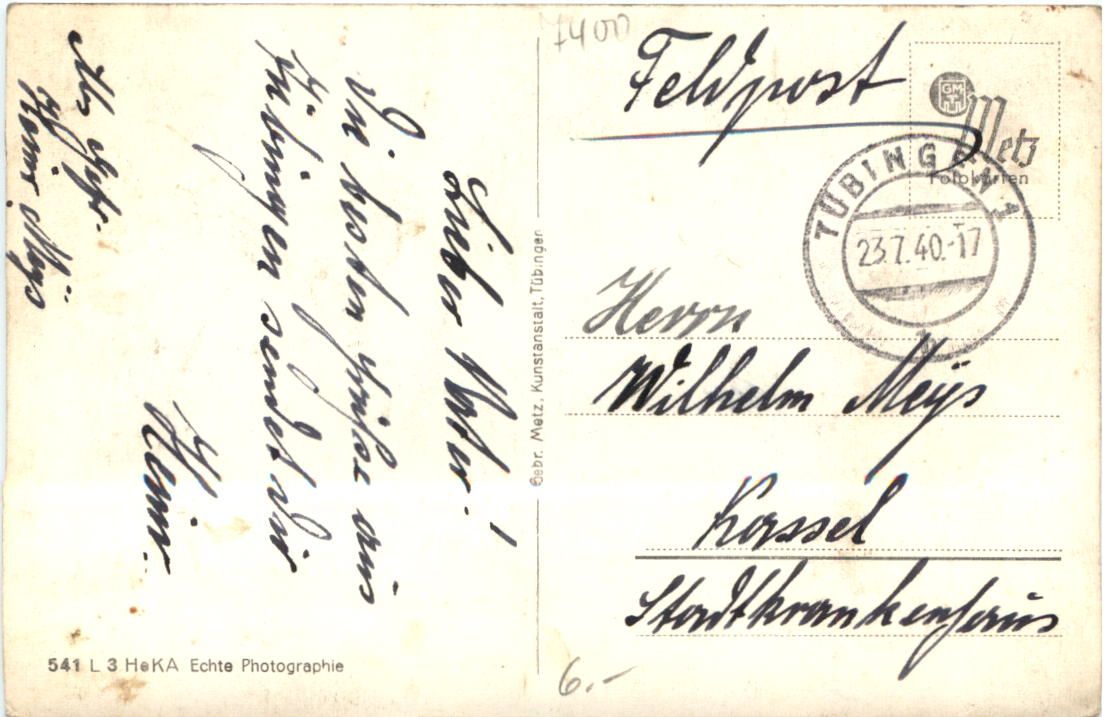 7400
Feldpost
GMT
Metz
Fotokarten
TÜBINGEN 1
23.7.40.-17
Herrn
Wilhelm Meÿs
Kassel
Stadtkrankenhaus
6.-
Lieber Vater!
Die besten Grüße aus
Tübingen sendet Dir
Heini.
Abs. Gefr.
Heini Meÿs
Gebr. Metz, Kunstanstalt, Tübingen
541 L 3 HeKA Echte Photographie